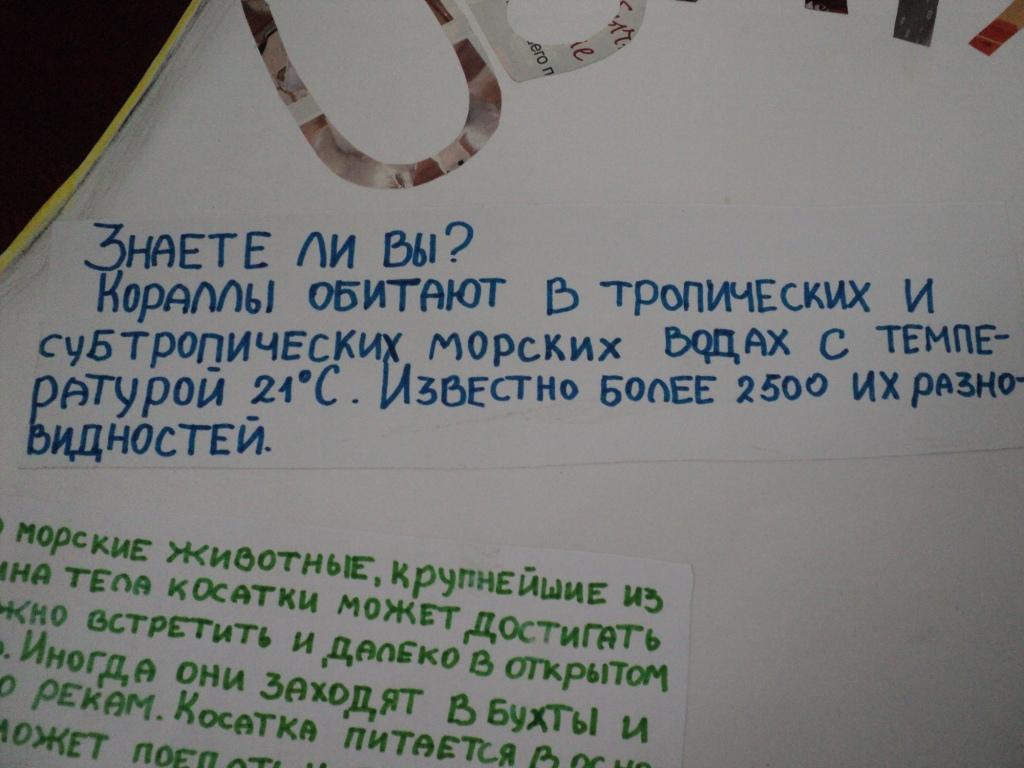 Знаете ли вы?
Кораллы обитают в тропических и
субтропических морских водах с темпе-
ратурой 21°С. Известно более 2500 их разно-
видностей.
морские животные, крупнейшие из
тела косатки может достигать
встретить и далеко в открытом
Иногда они заходят в бухты и
рекам. Косатка питается в